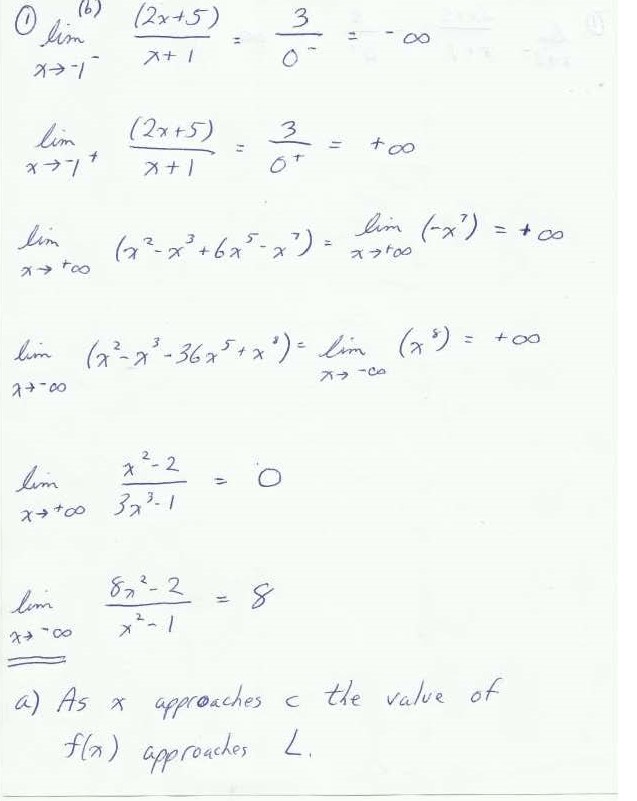 ① (b) lim x→-1⁻ (2x+5)/(x+1) = 3/0⁻ = -∞
lim x→-1⁺ (2x+5)/(x+1) = 3/0⁺ = +∞
lim x→+∞ (x²-x³+6x⁵-x⁷) = lim x→+∞ (-x⁷) = +∞
lim x→-∞ (x²-x³-36x⁵+x⁸) = lim x→-∞ (x⁸) = +∞
lim x→+∞ (x²-2)/(3x³-1) = 0
lim x→-∞ (8x²-2)/(x²-1) = 8
a) As x approaches c the value of
f(x) approaches L.